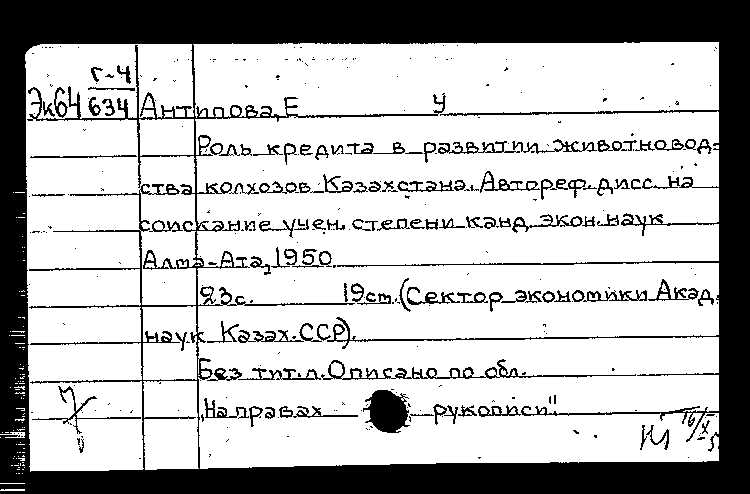 Г-4
Эк64 634 Антипова, Е У
Роль кредита в развитии животновод-
ства колхозов Казахстана. Автореф. дисс. на
соискание учен. степени канд. экон. наук.
Алма-Ата, 1950.
23с. 19см. (Сектор экономики Акад.
наук Казах. ССР).
Без тит. л. Описано по обл.
„На правах рукописи".
16/X